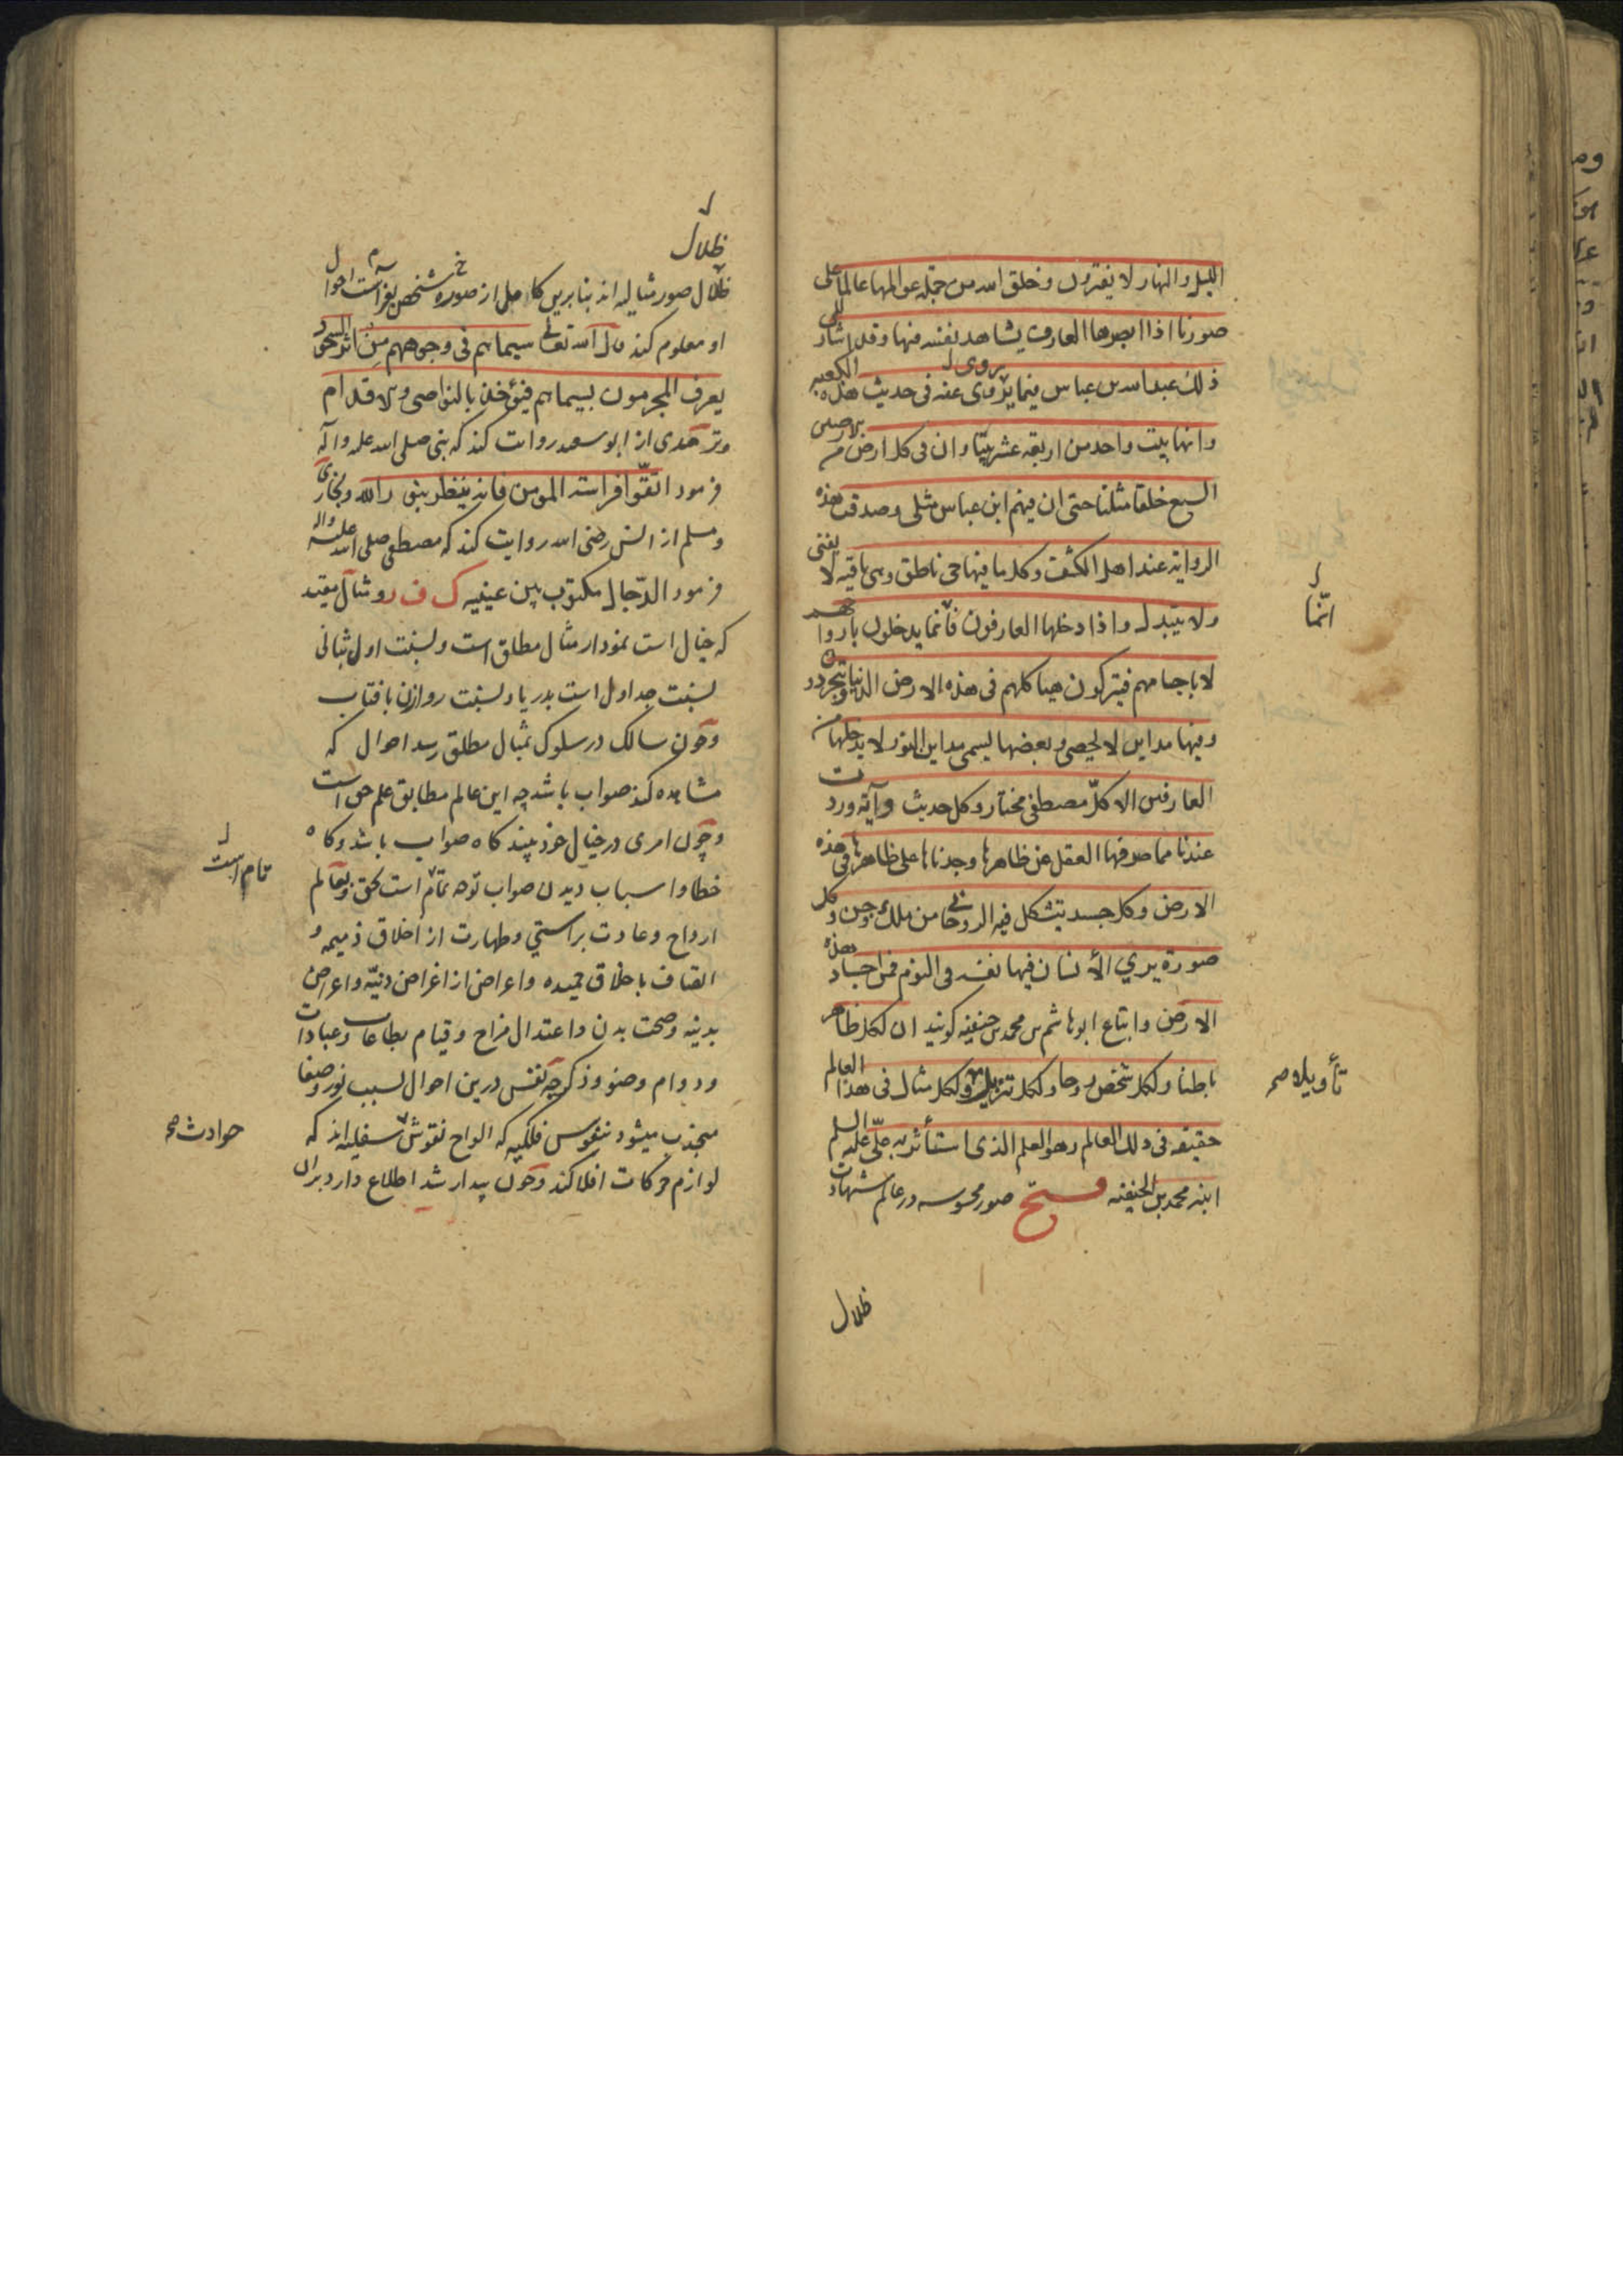 الليل والنهار لا يفترون وخلق الله من جملة عوالمها عالما على
صورنا اذا ابصرها العارف يشاهد نفسه فيها وقد اشار الى
ذلك عبد الله بن عباس فيما يروى عنه فى حديث هذه الكعبة
يروى
وانها بيت واحد من اربعة عشر بيتا وان فى كل ارض من الارضين
السبع خلقا مثلنا حتى ان فيهم ابن عباس مثلى وصدقت هذه
الرواية عند اهل الكشف وكل ما فيها حى ناطق وهى باقية لا يفنى
ولا يتبدل واذا دخلها العارفون فانما يدخلون بارواحهم
انّما
لا باجسامهم فيتركون هياكلهم فى هذه الارض الدنيا ويتجردون
وفيها مداين لا يحصى وبعضها يسمى مداين النور لا يدخلها من
العارفين الا كلّ مصطفى مختار وكل حديث وآية وردت
عندنا مما صرفها العقل عن ظاهرها وجدناها على ظاهرها فى هذه
الارض وكل جسد يتشكل فيه الروحانى من ملك وجن وكل
صورة يري الأنسان فيها نفسه فى النوم فمن اجساد هذه
الارض واتباع ابوهاشم بن محمد بن حنفيه كويند ان لكل ظاهر
باطنا ولكل شخص روحا ولكل تنزيل ولكل مثال فى هذا العالم
تأويلا صح
حقيقه فى ذلك العالم وهو العلم الذى استأثر به علىّ عليه السلم
ابنه محمد بن الحنفيه فتح صور محسوسه در عالم شهادت
ظلال
ظلال
ظلال صور مثاليه اند بنا برين كامل از صوره شخص بفراست احوال
او معلوم كند قال الله تعالى سيماهم فى وجوههم مِن اثر السجود
يعرف المجرمون بسيماهم فيؤخذ بالنواصى والاقدام
وترمذى از ابو سعيد روايت كند كه نبى صلى الله عليه وآله
فرمود اتقّوا فراسة المومن فانه ينظر بنور الله وبخارى
ومسلم از انس رضى الله روايت كند كه مصطفى صلى الله عليه واله
فرمود الدّجال مكتوب بين عينيه ك ف ر ومثال مقيد
كه خيال است نمودار مثال مطلق است ونسبت اول بثانى
نسبت جداول است بدريا ونسبت روازن بافتاب
وچون سالك در سلوك بمثال مطلق رسد احوال كه
مشاهده كند صواب باشد چه اين عالم مطابق علم حق است
وچون امرى در خيال خود بيند كاه صواب باشد وكاه
خطا واسباب ديدن صواب توجه تمام است بحق وبعالم
تام است
ارواح وعادت براستي وطهارت از اخلاق ذميمه و
اتصاف باخلاق حميده واعراض از اغراض دنيّه واعراض
بدنيه وصحت بدن واعتدال مزاج وقيام بطاعات وعبادات
ودوام وضو وذكر چه نفس درين احوال بسبب نور وصفا
منجذب ميشود بنفوس فلكيه كه الواح نقوش سفليه اند كه
حوادث صح
لوازم حركات افلاكند وچون بيدار شد اطلاع دارد بران